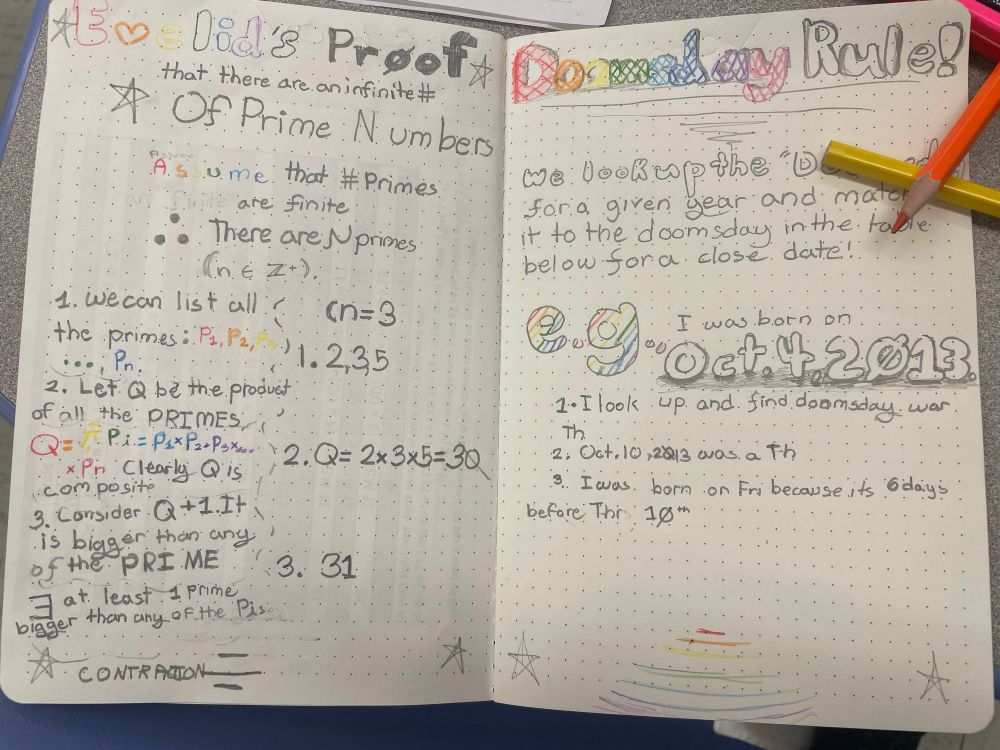 Euclid's Proof
that there are an infinite #
Of Prime Numbers
Assume
Assume that # Primes
are finite
∴ There are N primes
(n ∈ Z⁺).
1. we can list all
the primes: P₁, P₂, P₃
..., Pn.
2. Let Q be the product
of all the PRIMES
Q = π Pi = P₁ x P₂ x P₃ x ...
x Pn Clearly Q is
composite
3. Consider Q+1. It
is bigger than any
of the PRIME
∃ at least 1 prime
bigger than any of the Pis
CONTRACTION
(n=3
1. 2,3,5
2. Q= 2x3x5=30
3. 31
Doomsday Rule!
we look up the "Do
for a given year and matc
it to the doomsday in the table
below for a close date!
e.g.. I was born on
Oct.4,2013.
1. I look up and find doomsday war
Th
2. Oct.10,2013 was a Th
3. I was born on Fri because its 6 days
before Thr 10th